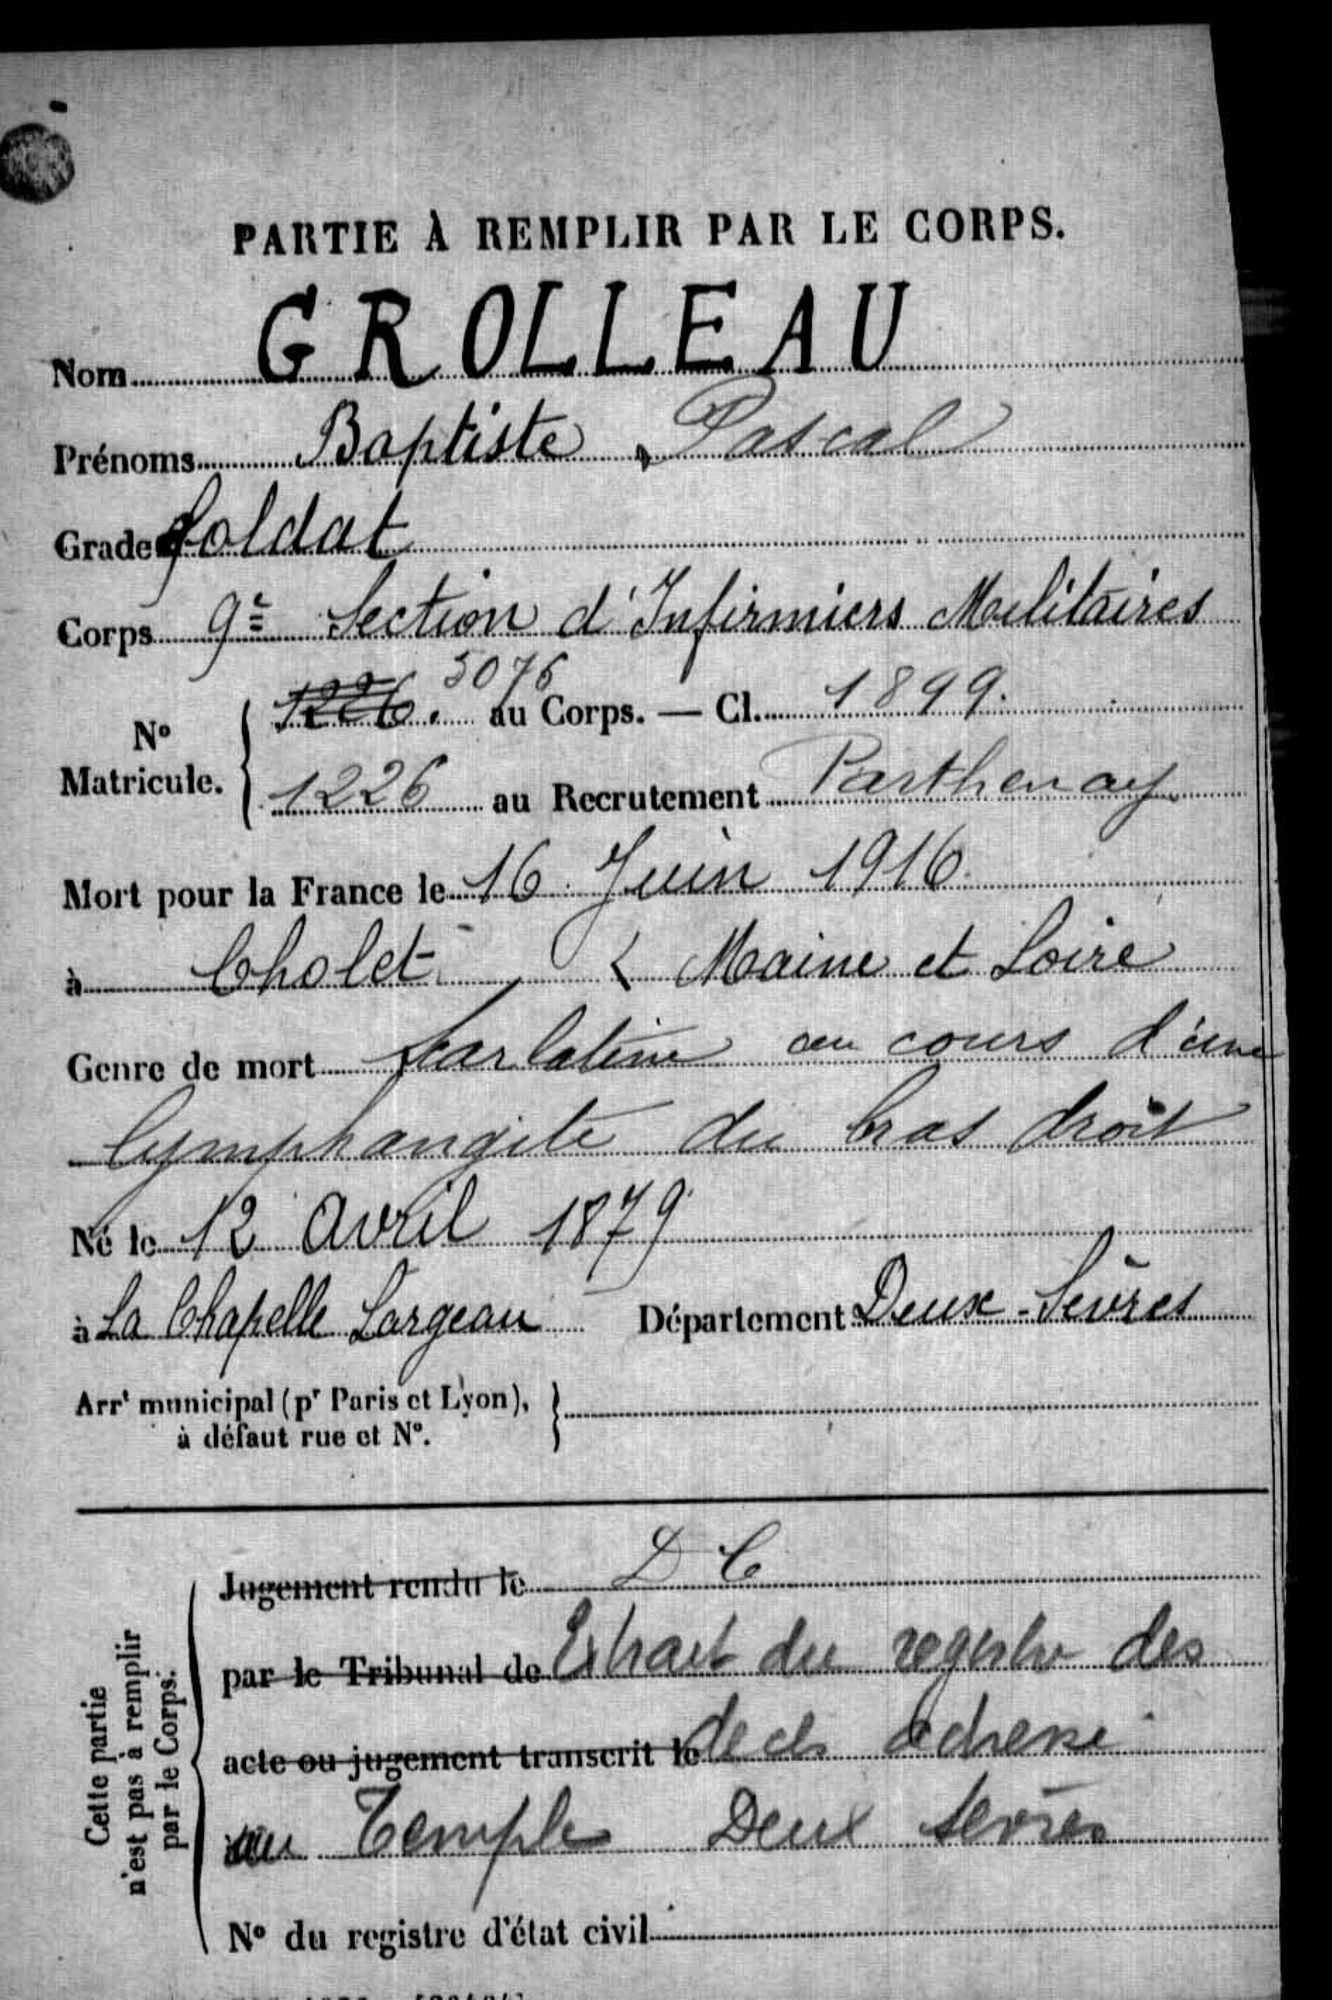 PARTIE À REMPLIR PAR LE CORPS.
Nom GROLLEAU
Prénoms Baptiste, Pascal
Grade Soldat
Corps 9e Section d'Infirmiers Militaires
N° Matricule. { 1226. 5076 au Corps. — Cl. 1899.
1226 au Recrutement Parthenay
Mort pour la France le 16 Juin 1916
à Cholet ( Maine et Loire
Genre de mort Scarlatine au cours d'une
lymphangite du bras droit
Né le 12 Avril 1879
à La Chapelle Largeau Département Deux-Sèvres
Arrt municipal (pr Paris et Lyon), à défaut rue et N°. }
Cette partie n'est pas à remplir par le Corps.
Jugement rendu le D C
par le Tribunal de Extrait du registre des
acte ou jugement transcrit le decès adressé
au Temple Deux Sèvres
N° du registre d'état civil